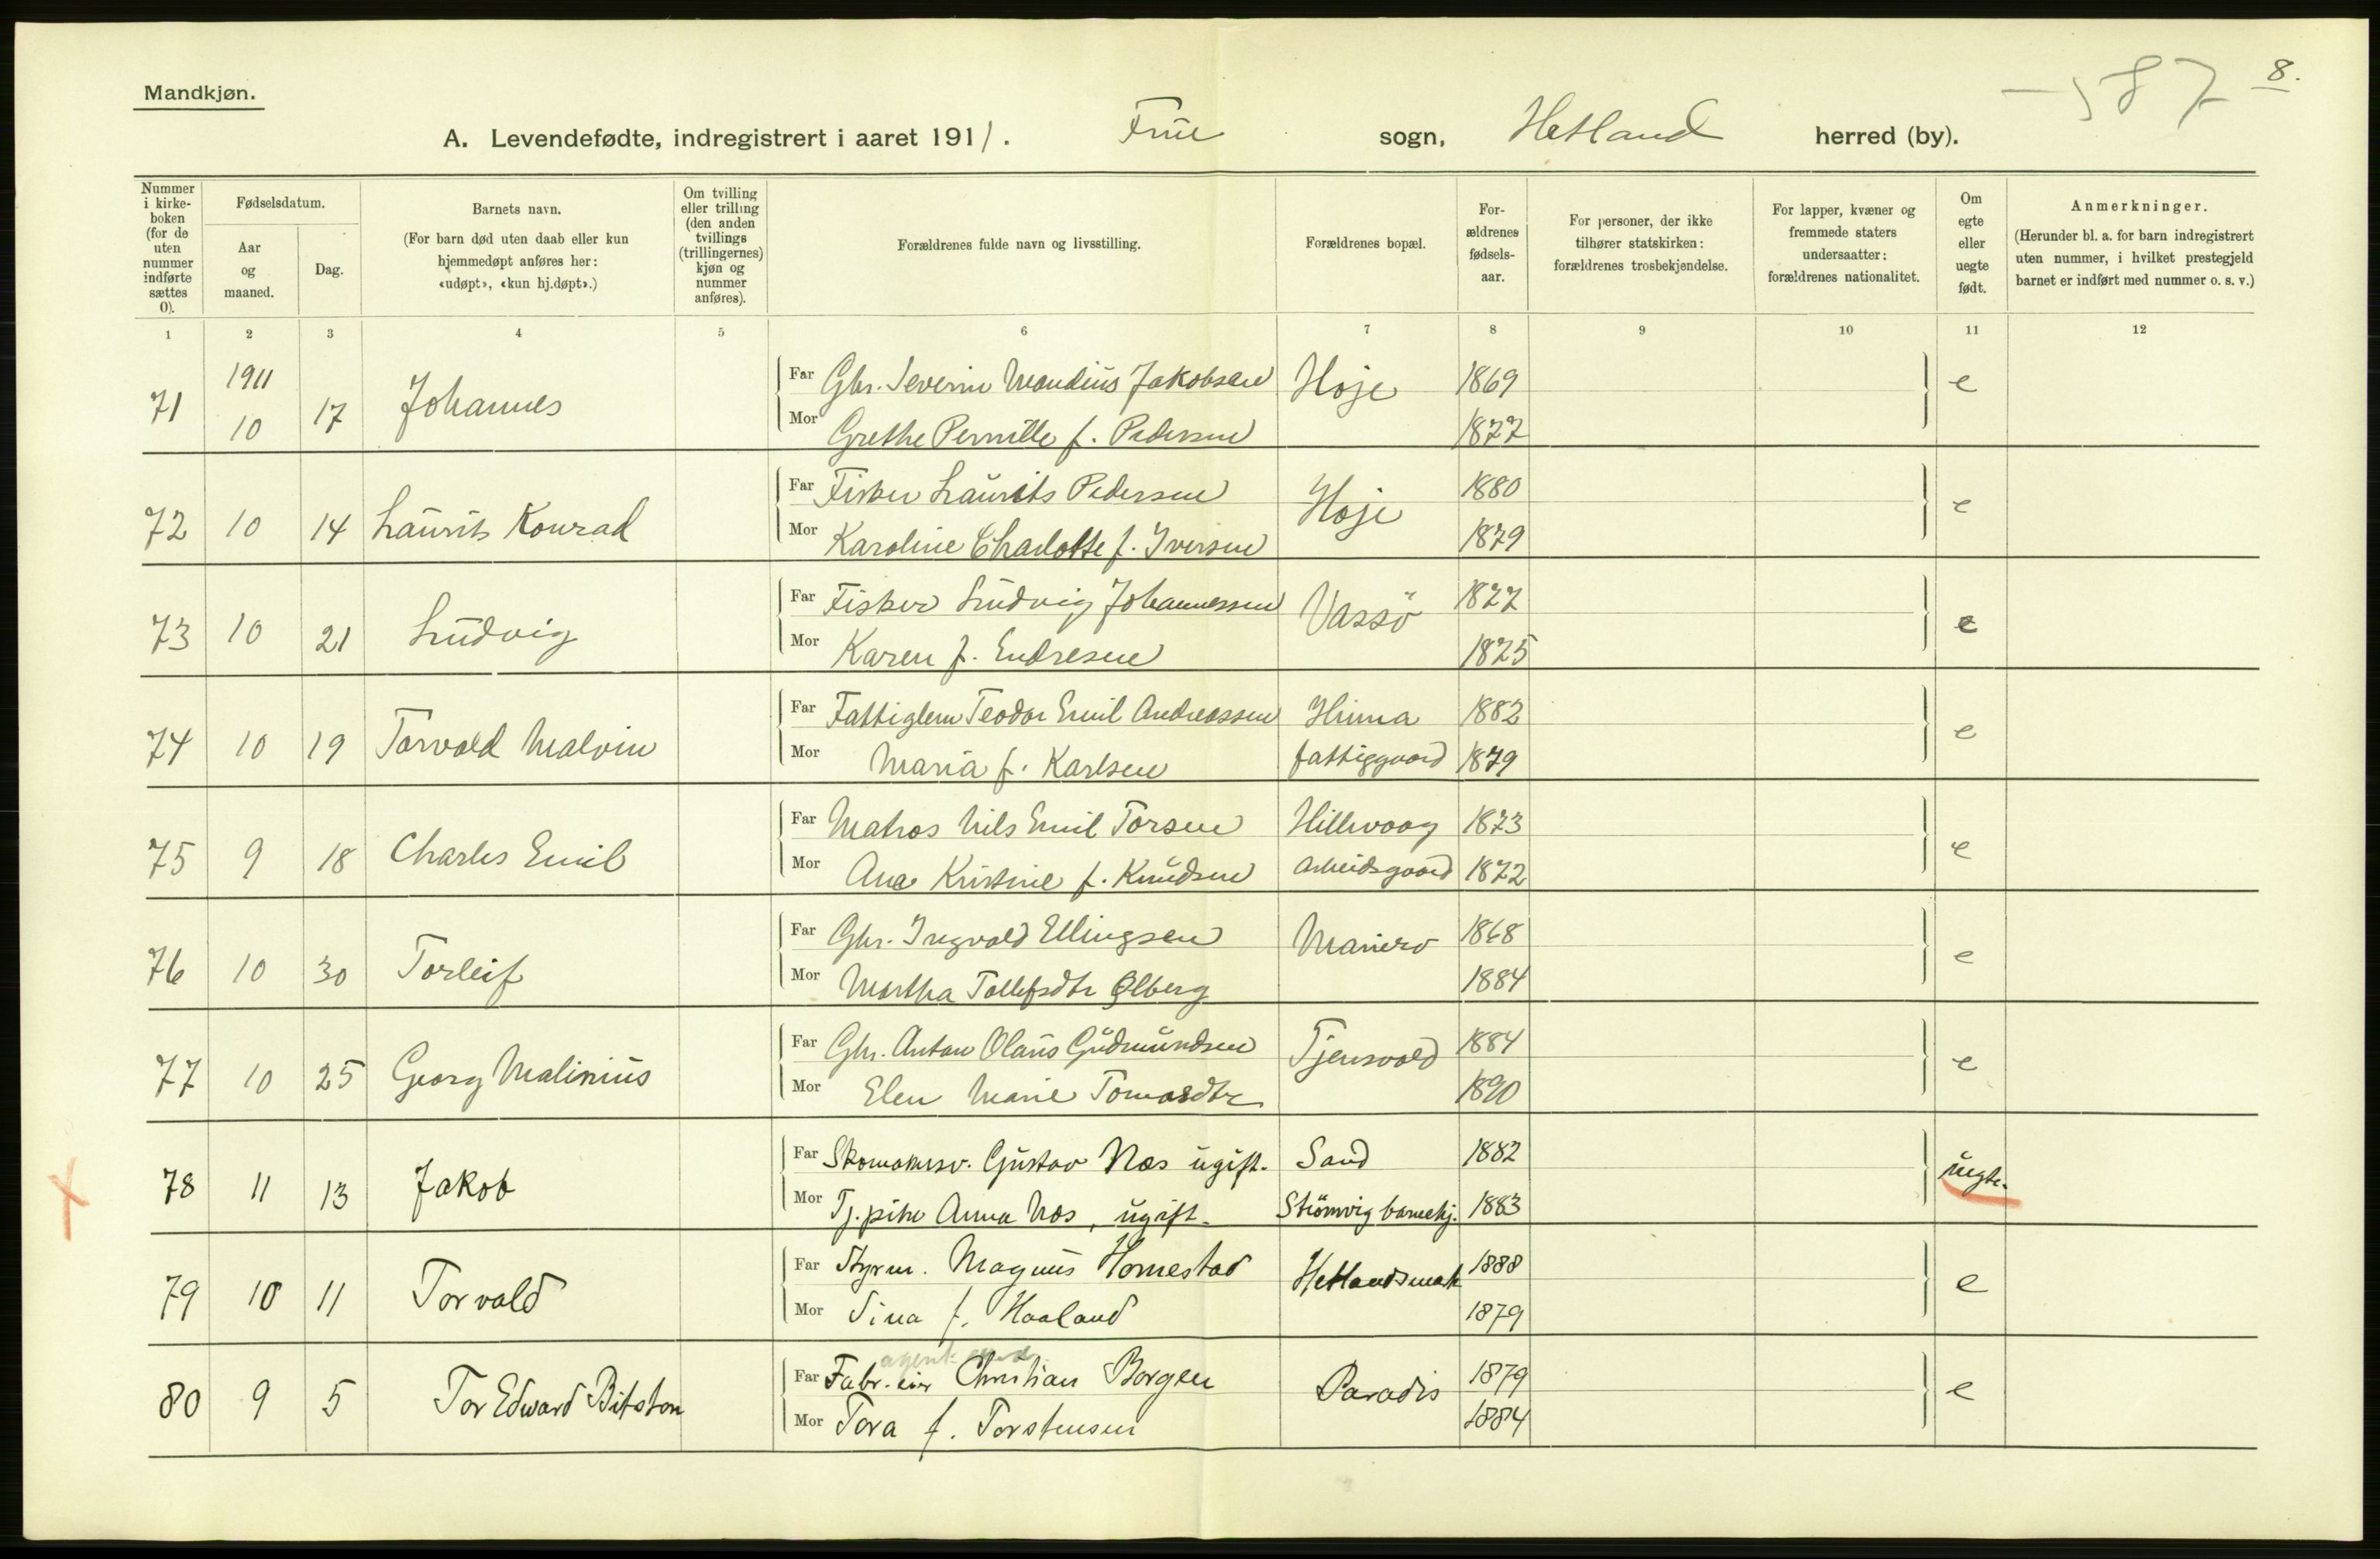 Mandkjøn.
587
8.
A. Levendefødte, indregistrert i aaret 1911. Frue sogn, Hetland herred (by).
Nummer i kirkeboken (for de uten nummer indførte sættes 0).
Fødselsdatum.
Aar og maaned.
Dag.
Barnets navn.
(For barn død uten daab eller kun hjemmedøpt anføres her: «udøpt», «kun hj.døpt».)
Om tvilling eller trilling (den anden tvillings (trillingernes) kjøn og nummer anføres).
Forældrenes fulde navn og livsstilling.
Forældrenes bopæl.
Forældrenes fødselsaar.
For personer, der ikke tilhører statskirken: forældrenes trosbekjendelse.
For lapper, kvæner og fremmede staters undersaatter: forældrenes nationalitet.
Om egte eller uegte født.
Anmerkninger.
(Herunder bl. a. for barn indregistrert uten nummer, i hvilket prestegjeld barnet er indført med nummer o. s. v.)
1 2 3 4 5 6 7 8 9 10 11 12
71 1911 10 17 Johannes Far Gbr. Severin Mandius Jakobsen Hoje 1869 e
Mor Grethe Pernille f. Pedersen 1877
72 10 14 Laurits Konrad Far Fisker Laurits Pedersen Hoje 1880 e
Mor Karoline Charlotte f. Iversen 1879
73 10 21 Ludvig Far Fisker Ludvig Johannessen Vassö 1877 e
Mor Karen f. Endresen 1875
74 10 19 Torvald Malvin Far Fattiglem Teodor Emil Andreassen Hinna 1882 e
Mor Maria f. Karlsen fattiggaard 1879
75 9 18 Charles Emil Far Matros Nils Emil Torsen Hillevaag 1873 e
Mor Ana Kristine f. Knudsen arbeidsgaard 1872
76 10 30 Torleif Far Gbr. Ingvald Ellingsen Mariero 1868 e
Mor Martha Tollefsdtr Ølberg 1884
77 10 25 Georg Malinius Far Gbr. Anton Olaus Gudmundsen Tjensvold 1884 e
Mor Elen Marie Tomasdtr 1890
78 11 13 Jakob Far Skomakersv. Gustav Næs ugift. Sand 1882 uegte.
Mor Tj.pike Anna Nos, ugift. Strömvig barnehj. 1883
79 10 11 Torvald Far Styrm. Magnus Homestad Hetlandsmark 1888 e
Mor Sina f. Haaland 1879
agent
80 9 5 Tor Edward Bitston Far Fabr.eier Christian Borgen Paradis 1879 e
Mor Tora f. Torstensen 1884